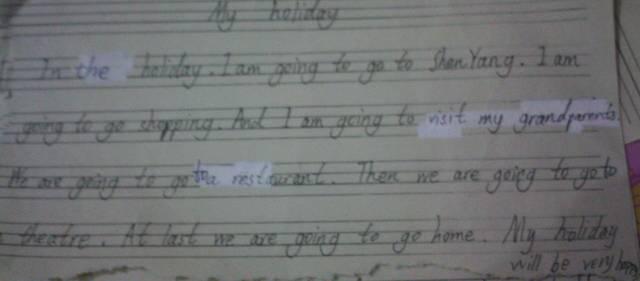 My holiday
In the holiday. I am going to go to ShenYang. I am
going to go shopping. And I am going to visit my grandparents.
We are going to go to a restaurant. Then we are goieg to go to
theatre. At last we are going to go home. My holiday
will be very happy